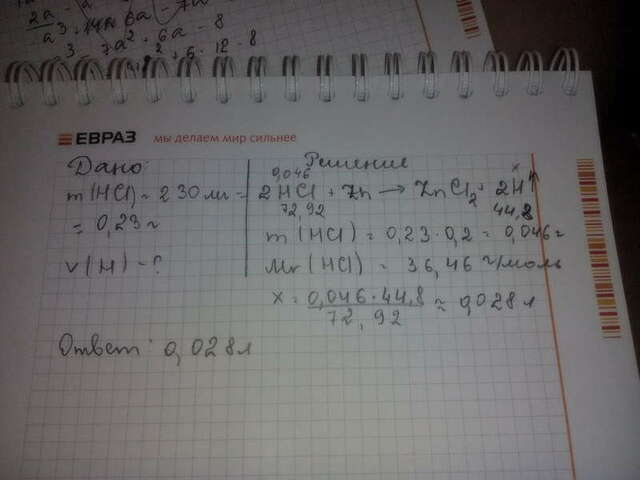 2a
a³ + 14a 6a - 7a
3 - 7a² + 6a - 8
² + 6 · 12 - 8
ЕВРАЗ мы делаем мир сильнее
Дано:
m(HCl) = 230 мг =
= 0,23 г
v(H) - ?
Решение
0,046 x
2HCl + Zn → ZnCl₂ + 2H↑
72,92 44,8
m(HCl) = 0,23 · 0,2 = 0,046 г
Mr(HCl) = 36,46 г/моль
x = 0,046 · 44,8 / 72,92 ≈ 0,028 л
Ответ: 0,028 л